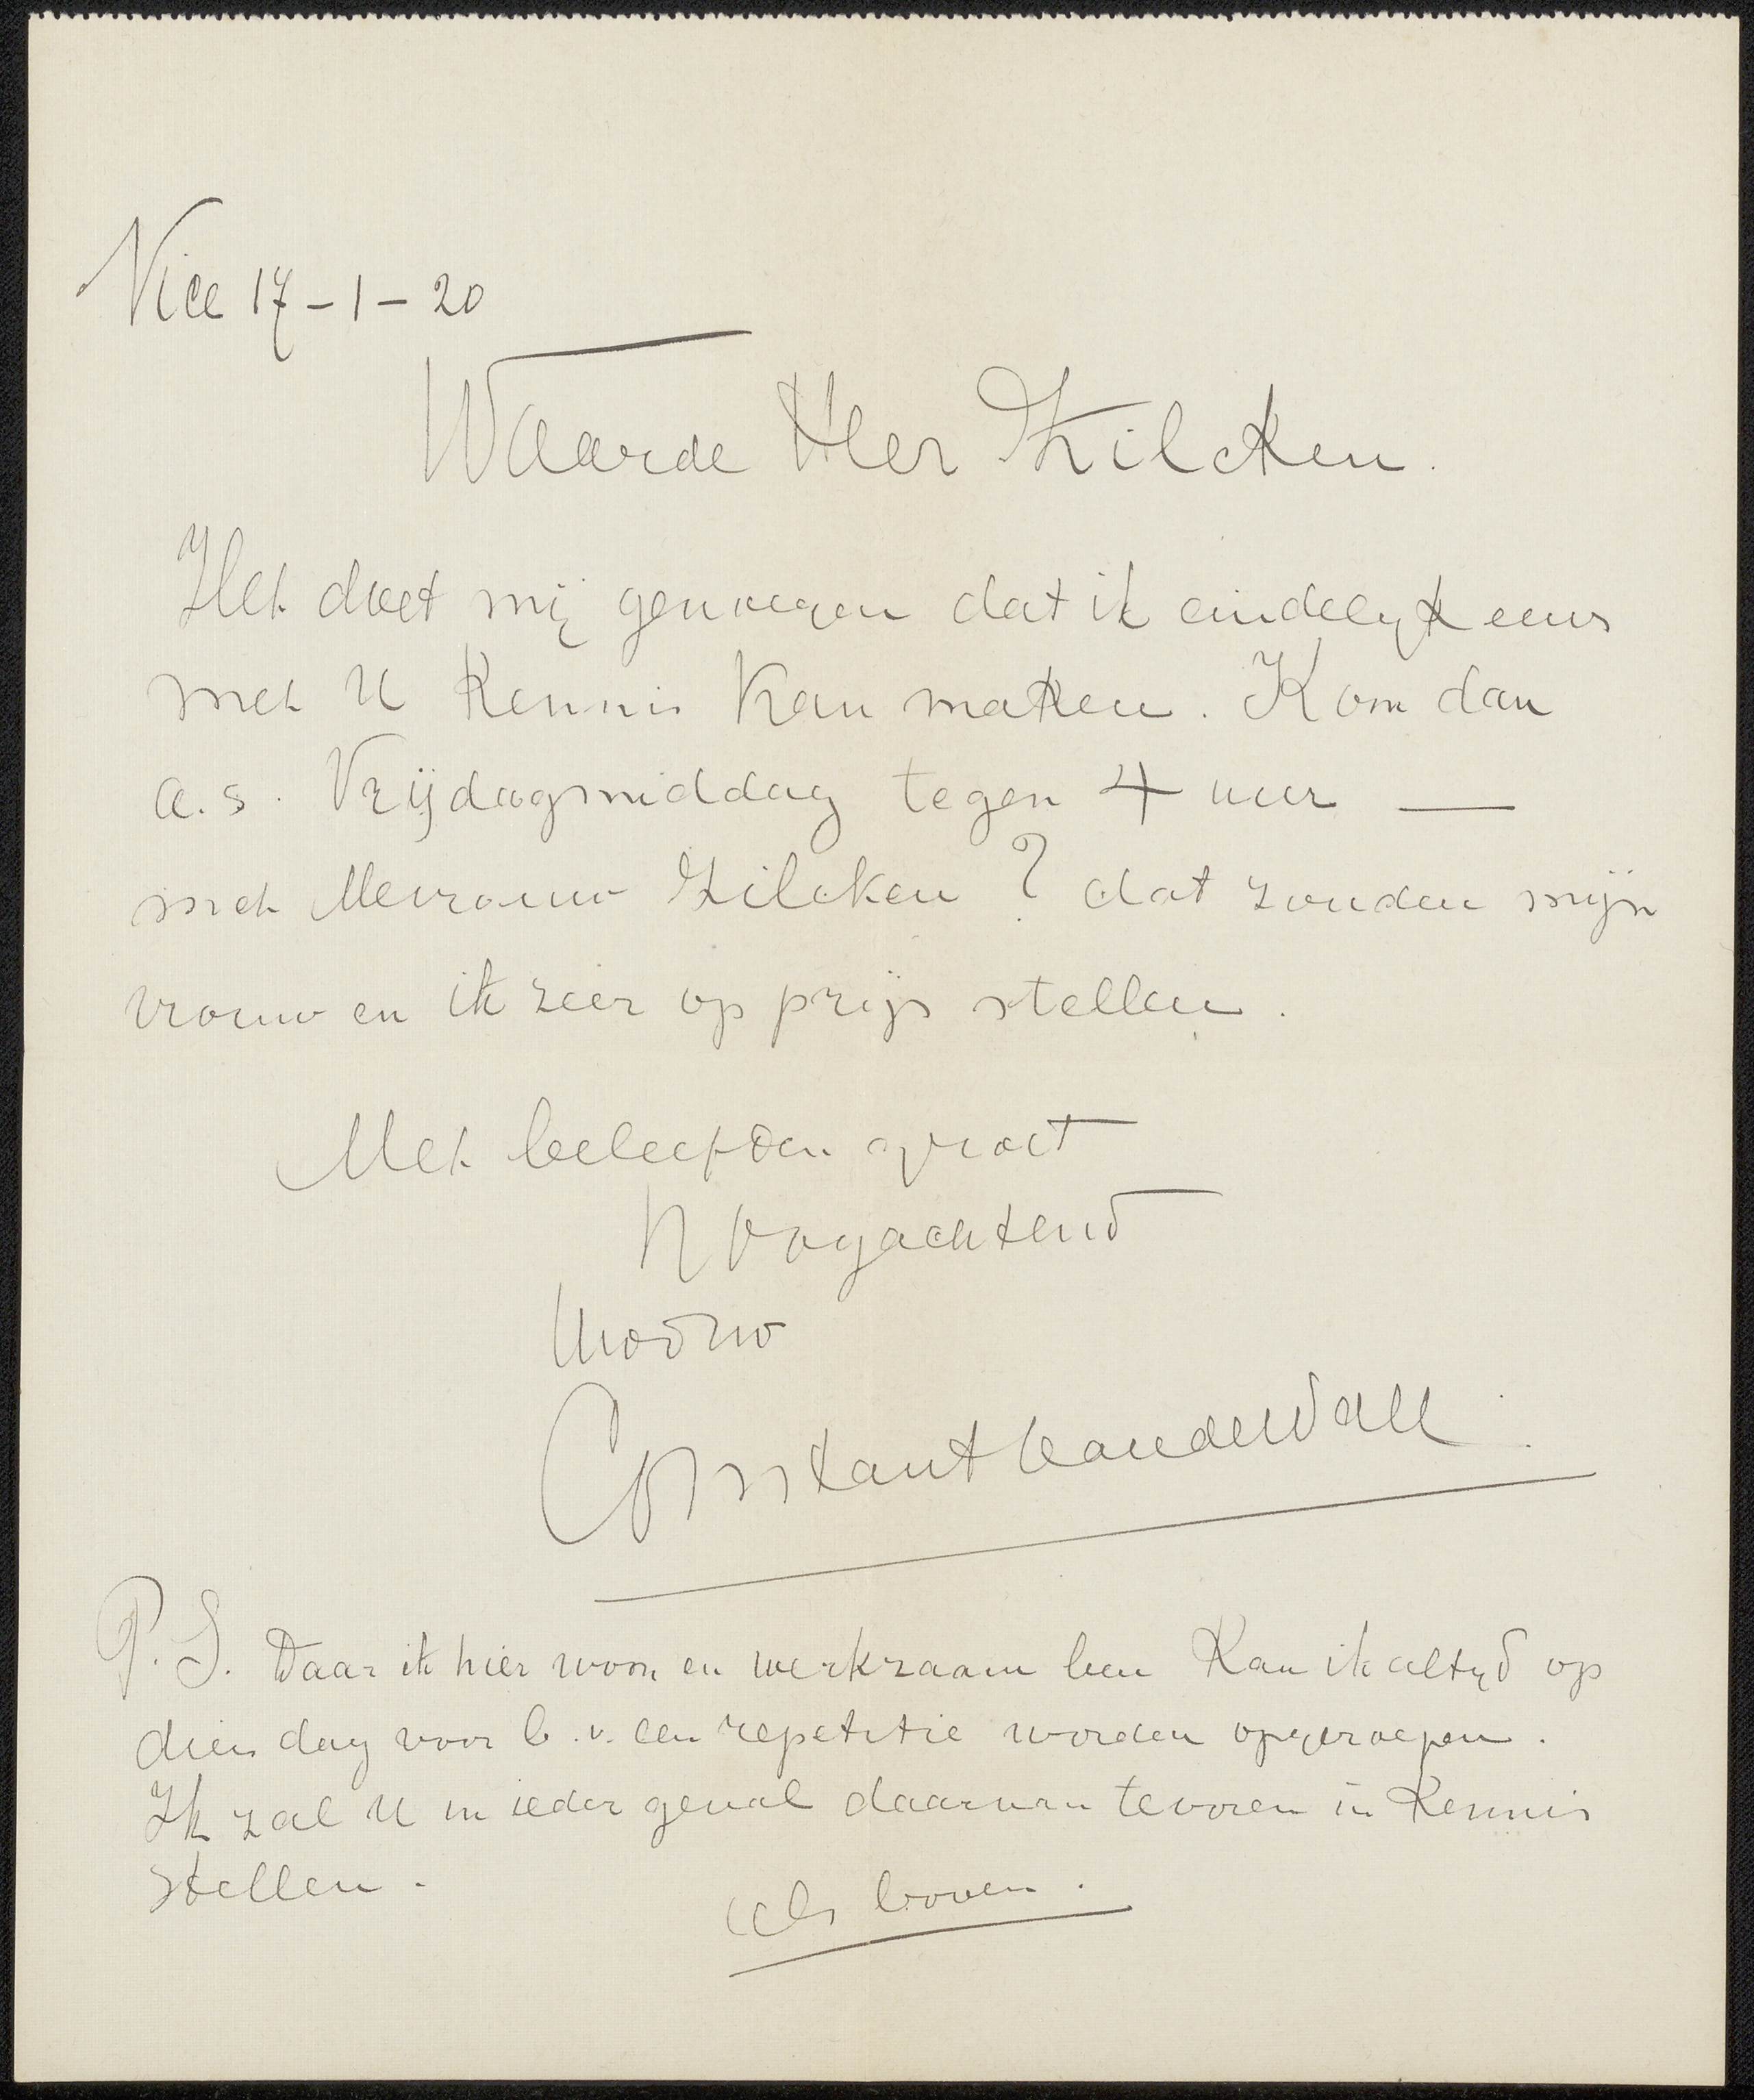 Nice 17-1-20
Waarde Heer Zilcken.
Het doet mij genoegen dat ik eindelijk eens
met U kennis kan maken. Kom dan
a.s. Vrijdagmiddag tegen 4 uur —
met Mevrouw Zilcken? dat zouden mijn
vrouw en ik zeer op prijs stellen.
Met beleefden groet
Hoogachtend
Uwdw
Constant van de Wall
P.S. Daar ik hier woon en werkzaam ben kan ik altijd op
dien dag voor b.v. een repetitie worden opgeroepen.
Ik zal U in ieder geval daarvan tevoren in kennis
stellen.
als boven.